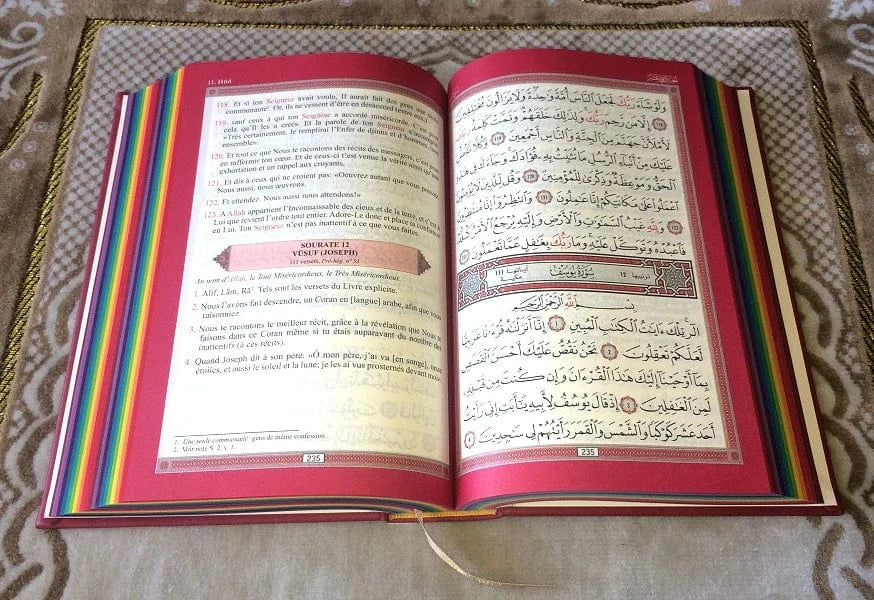 11. Hûd
118. Et si ton Seigneur avait voulu, Il aurait fait des gens une seule
communauté¹. Or, ils ne cessent d'être en désaccord (entre eux,)
119. sauf ceux à qui ton Seigneur a accordé miséricorde. C'est pour
cela qu'Il les a créés. Et la parole de ton Seigneur s'accomplit:
«Très certainement, Je remplirai l'Enfer de djinns et d'hommes, tous
ensemble».
120. Et tout ce que Nous te racontons des récits des messagers, c'est pour
en raffermir ton cœur. Et de ceux-ci t'est venue la vérité ainsi qu'une
exhortation et un rappel aux croyants.
121. Et dis à ceux qui ne croient pas: «Oeuvrez autant que vous pouvez.
Nous aussi, nous œuvrons.
122. Et attendez. Nous aussi nous attendons!»
123. A Allah appartient l'Inconnaissable des cieux et de la terre, et c'est à
Lui que revient l'ordre tout entier. Adore-Le donc et place ta confiance
en Lui. Ton Seigneur n'est pas inattentif à ce que vous faites.
SOURATE 12
YÛSUF (JOSEPH)
111 versets, Pré-hég. n° 53
Au nom d'Allah, le Tout Miséricordieux, le Très Miséricordieux.
1. Alif, Lâm, Râ². Tels sont les versets du Livre explicite.
2. Nous l'avons fait descendre, un Coran en [langue] arabe, afin que vous
raisonniez.
3. Nous te racontons le meilleur récit, grâce à la révélation que Nous te
faisons dans ce Coran même si tu étais auparavant du nombre des
inattentifs (à ces récits).
4. Quand Joseph dit à son père: «Ô mon père, j'ai vu [en songe], onze
étoiles, et aussi le soleil et la lune; je les ai vus prosternés devant moi».
1. Une seule communauté: gens de même confession.
2. Voir note S. 2. v. 1.
235
وَلَوْ شَآءَ رَبُّكَ لَجَعَلَ ٱلنَّاسَ أُمَّةً وَٰحِدَةً وَلَا يَزَالُونَ مُخْتَلِفِينَ
١١٨ إِلَّا مَن رَّحِمَ رَبُّكَ وَلِذَٰلِكَ خَلَقَهُمْ وَتَمَّتْ كَلِمَةُ رَبِّكَ
لَأَمْلَأَنَّ جَهَنَّمَ مِنَ ٱلْجِنَّةِ وَٱلنَّاسِ أَجْمَعِينَ ١١٩ وَكُلًّا نَّقُصُّ
عَلَيْكَ مِنْ أَنۢبَآءِ ٱلرُّسُلِ مَا نُثَبِّتُ بِهِۦ فُؤَادَكَ وَجَآءَكَ فِى هَٰذِهِ
ٱلْحَقُّ وَمَوْعِظَةٌ وَذِكْرَىٰ لِلْمُؤْمِنِينَ ١٢٠ وَقُل لِّلَّذِينَ لَا يُؤْمِنُونَ
ٱعْمَلُوا۟ عَلَىٰ مَكَانَتِكُمْ إِنَّا عَٰمِلُونَ ١٢١ وَٱنتَظِرُوٓا۟ إِنَّا مُنتَظِرُونَ
١٢٢ وَلِلَّهِ غَيْبُ ٱلسَّمَٰوَٰتِ وَٱلْأَرْضِ وَإِلَيْهِ يُرْجَعُ ٱلْأَمْرُ كُلُّهُۥ
فَٱعْبُدْهُ وَتَوَكَّلْ عَلَيْهِ وَمَا رَبُّكَ بِغَٰفِلٍ عَمَّا تَعْمَلُونَ ١٢٣
ترتيبها 12 سُورَةُ يُوسُفَ آياتها 111
بِسْمِ ٱللَّهِ ٱلرَّحْمَٰنِ ٱلرَّحِيمِ
الٓر تِلْكَ ءَايَٰتُ ٱلْكِتَٰبِ ٱلْمُبِينِ ١ إِنَّآ أَنزَلْنَٰهُ قُرْءَٰنًا عَرَبِيًّا
لَّعَلَّكُمْ تَعْقِلُونَ ٢ نَحْنُ نَقُصُّ عَلَيْكَ أَحْسَنَ ٱلْقَصَصِ
بِمَآ أَوْحَيْنَآ إِلَيْكَ هَٰذَا ٱلْقُرْءَانَ وَإِن كُنتَ مِن قَبْلِهِۦ
لَمِنَ ٱلْغَٰفِلِينَ ٣ إِذْ قَالَ يُوسُفُ لِأَبِيهِ يَٰٓأَبَتِ إِنِّى رَأَيْتُ
أَحَدَ عَشَرَ كَوْكَبًا وَٱلشَّمْسَ وَٱلْقَمَرَ رَأَيْتُهُمْ لِى سَٰجِدِينَ ٤
235